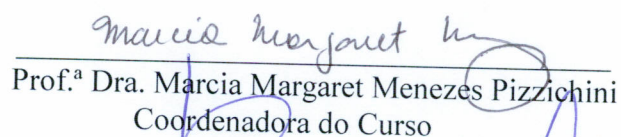 Marcia Margaret M
Prof.ª Dra. Marcia Margaret Menezes Pizzichini
Coordenadora do Curso